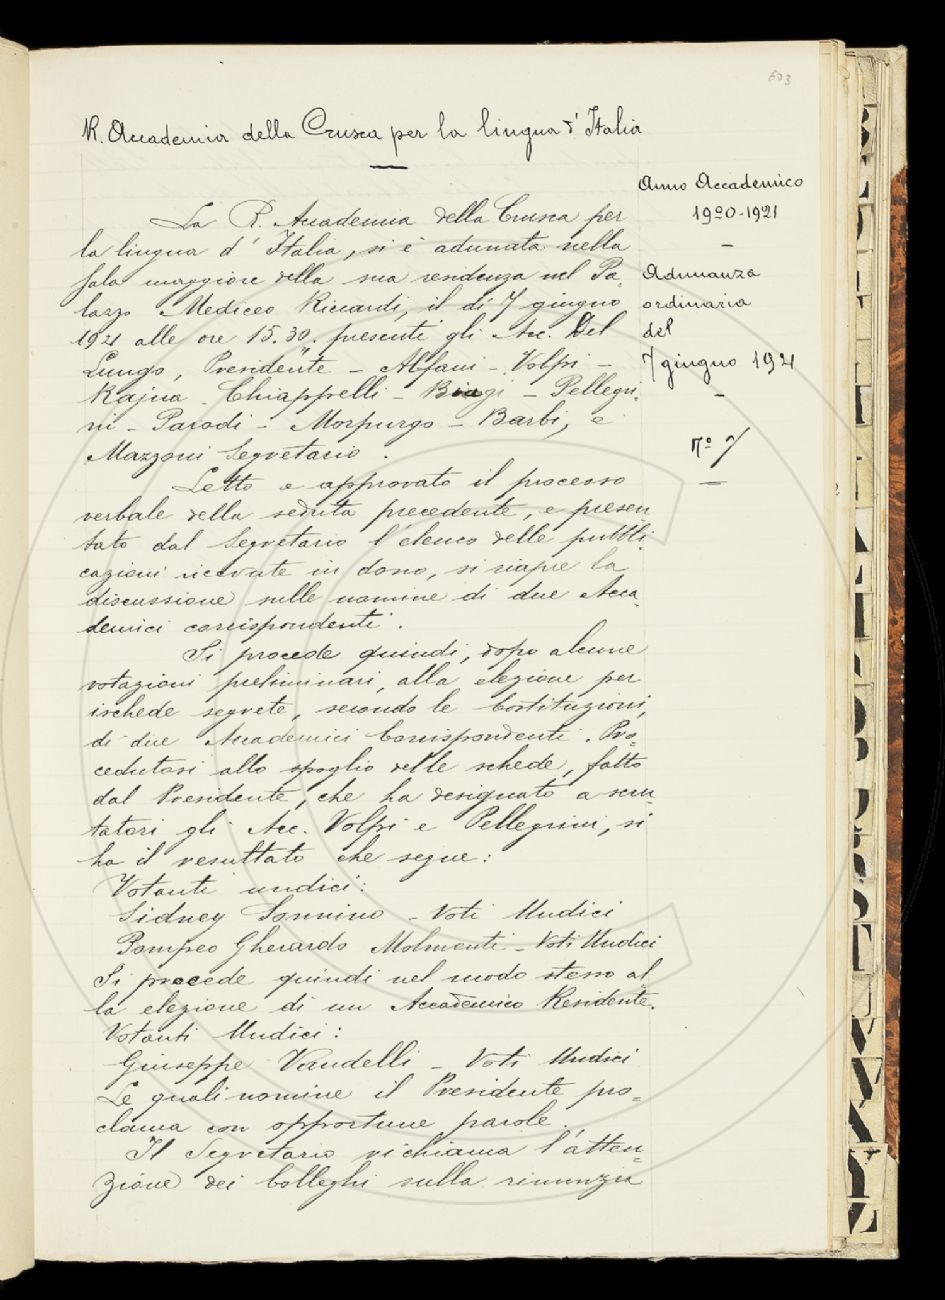 603
R. Accademia della Crusca per la lingua d'Italia
Anno Accademico
1920-1921
Adunanza
ordinaria
del
7 giugno 1921
La R. Accademia della Crusca per
la lingua d'Italia, si è adunata nella
Sala maggiore della sua residenza nel Pa-
lazzo Mediceo Riccardi, il dì 7 giugno
1921 alle ore 15.30. presenti gli Acc. Del
Lungo, Presidente - Alfani - Volpi -
Rajna - Chiappelli - Biagi - Pellegri-
ni - Parodi - Morpurgo - Barbi, e
Mazzoni Segretario.
Letto e approvato il processo
verbale della seduta precedente, e presen
tato dal Segretario l'elenco delle pubbli
cazioni ricevute in dono, si riapre la
discussione sulle nomine di due Acca-
demici corrispondenti.
Si procede quindi, dopo alcune
votazioni preliminari, alla elezione per
ischede segrete, secondo le Costituzioni,
di due Accademici Corrispondenti. Pro-
cedutosi allo spoglio delle schede, fatto
dal Presidente, che ha designato a scru-
tatori gli Acc. Volpi e Pellegrini, si
ha il resultato che segue:
Votanti undici:
Sidney Sonnino - Voti Undici
Pompeo Gherardo Molmenti - Voti Undici
Si procede quindi nel modo stesso al
la elezione di un Accademico Residente.
Votanti Undici:
Giuseppe Vandelli - Voti Undici
Le quali nomine il Presidente pro-
clama con opportune parole.
Il Segretario richiama l'atten-
zione dei Colleghi sulla rinunzia